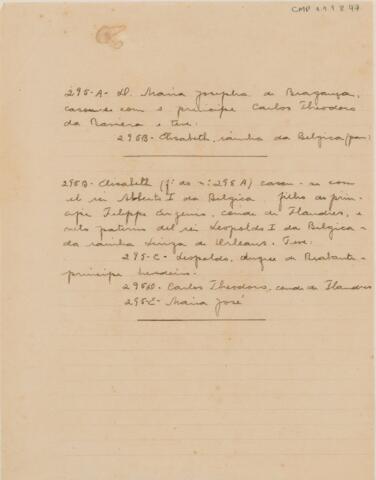 CMP 2.9.9.8 97
295-A- D. Maria Josepha de Bragança,
casou-se com o principe Carlos Theodoro
da Baviera e teve:
295B- Elisabeth, rainha da Belgica
295B- Elisabeth (fª do nº 295A) casou-se com
el rei Alberto I da Belgica, filho do prin-
cipe Filippe Eugenio, conde de Flandres, e
neto paterno del rei Leopoldo I da Belgica e
da rainha Luiza de Orleans. Teve:
295-C- Leopoldo, duque de Brabante-
principe herdeiro.
295D- Carlos Theodoro, conde de Flandres
295-E- Maria José